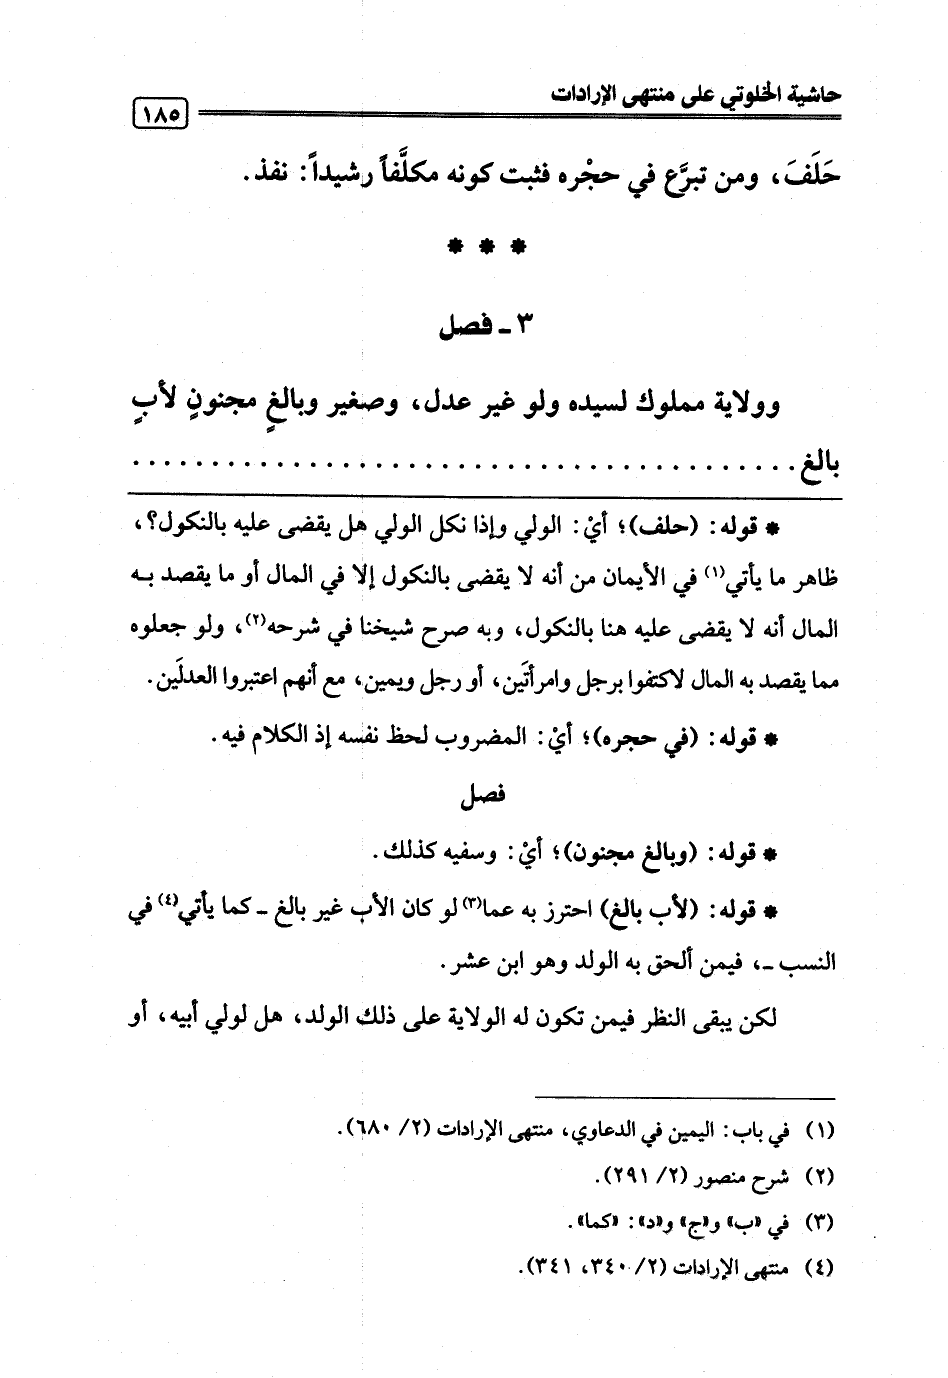 حاشية الخلوتي على منتهى الإرادات
١٨٥
حَلَفَ، ومن تبرَّع في حجْره فثبت كونه مكلَّفاً رشيداً: نفذ.
* * *
٣ ـ فصل
وولاية مملوك لسيده ولو غير عدل، وصغير وبالغٍ مجنونٍ لأبٍ
بالغ . . . . . . . . . . . . . . . . . . . . . . . . . . . . . . . . . . . . . . . .
* قوله: (حلف)؛ أيْ: الولي وإذا نكل الولي هل يقضى عليه بالنكول؟،
ظاهر ما يأتي(١) في الأيمان من أنه لا يقضى بالنكول إلا في المال أو ما يقصد بـه
المال أنه لا يقضى عليه هنا بالنكول، وبه صرح شيخنا في شرحه(٢)، ولو جعلوه
مما يقصد به المال لاكتفوا برجل وامرأتَين، أو رجل ويمين، مع أنهم اعتبروا العدلَين.
* قوله: (في حجره)؛ أيْ: المضروب لحظ نفسه إذ الكلام فيه.
فصل
* قوله: (وبالغ مجنون)؛ أيْ: وسفيه كذلك.
* قوله: (لأب بالغ) احترز به عما(٣) لو كان الأب غير بالغ ـ كما يأتي(٤) في
النسب ـ، فيمن ألحق به الولد وهو ابن عشر.
لكن يبقى النظر فيمن تكون له الولاية على ذلك الولد، هل لولي أبيه، أو
(١) في باب: اليمين في الدعاوي، منتهى الإرادات (٢/ ٦٨٠).
(٢) شرح منصور (٢/ ٢٩١).
(٣) في «ب» و«ج» و«د»: «كما».
(٤) منتهى الإرادات (٢/ ٣٤٠، ٣٤١).